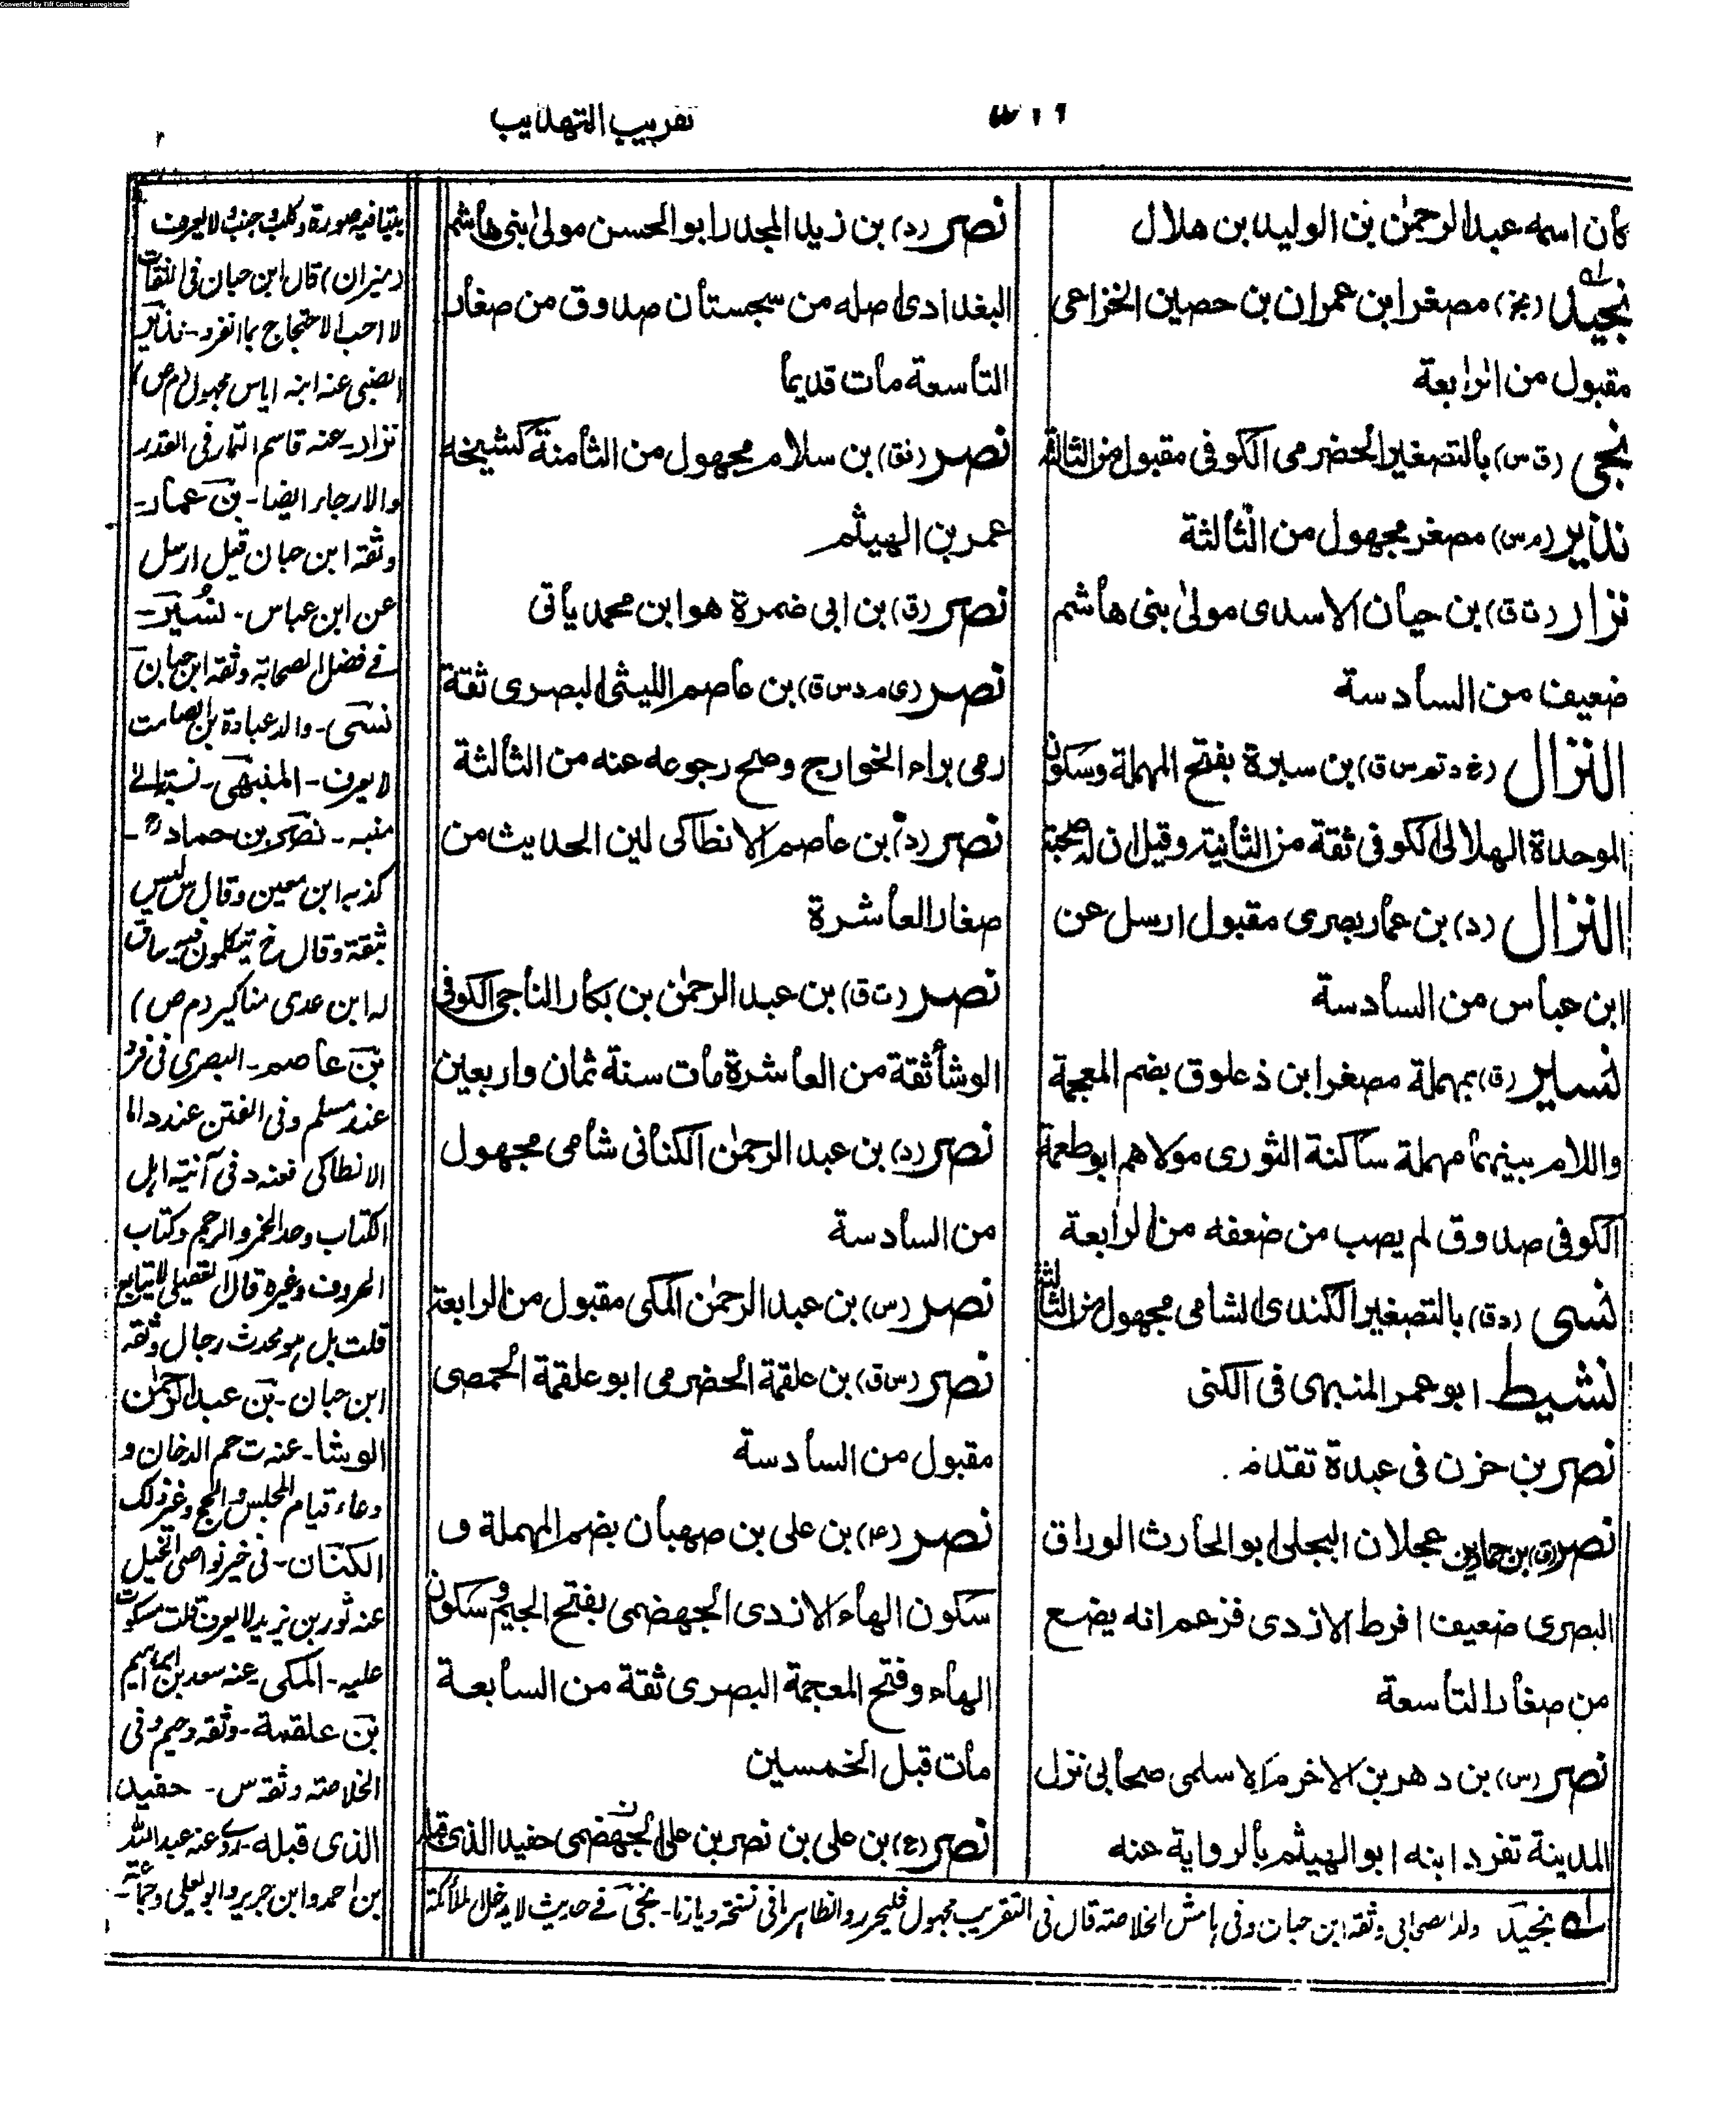 Converted by Tiff Combine - unregistered
تقريب التهذيب
كان اسمه عبد الرحمٰن بن الوليد بن هلال
نجيد (بخ) مصغرا بن عمران بن حصين الخزاعى
مقبول من الرابعة
نجى (ق س) بالتصغير الحضرمى الكوفى مقبول من الثالثة
نذير (م س) مصغر مجهول من الثالثة
نزار (ت ق) بن حيان الاسدى مولىٰ بنى هاشم
ضعيف من السادسة
النزال (خ د تم س ق) بن سبرة بفتح المهملة وسكون
الموحدة الهلالى الكوفى ثقة من الثانية وقيل ان له صحبة
النزال (د) بن عمار بصرى مقبول ارسل عن
ابن عباس من السادسة
نسير (ق) بمهملة مصغرا بن ذعلوق بضم المعجمة
واللام بينهما مهملة ساكنة الثورى مولاهم ابو طعمة
الكوفى صدوق لم يصب من ضعفه من الرابعة
نسى (د ق) بالتصغير الكندى الشامى مجهول من الثالثة
نشيط ابو عمر المنبهى فى الكنى
نصر بن حزن فى عبدة تقدم .
نصر (ق) بن حماد بن عجلان البجلى ابو الحارث الوراق
البصرى ضعيف افرط الازدى فزعم انه يضع
من صغار التاسعة
نصر (س) بن دهر بن الاخرم الاسلمى صحابى نزل
المدينة تفرد ابنه ابو الهيثم بالرواية عنه
نصر (د) بن زيد المجدر ابو الحسن مولىٰ بنى هاشم
البغدادى اصله من سجستان صدوق من صغار
التاسعة مات قديما
نصر (فق) بن سلام مجهول من الثامنة كشيخه
عمر بن الهيثم
نصر (ق) بن ابى ضمرة هو ابن محمد يأتى
نصر (ى م د س ق) بن عاصم الليثى البصرى ثقة
رمى براء الخوارج وصح رجوعه عنه من الثالثة
نصر (د) بن عاصم الانطاكى لين الحديث من
صغار العاشرة
نصر (ت ق) بن عبد الرحمٰن بن بكار الناجى الكوفى
الوشاء ثقة من العاشرة مات سنة ثمان واربعين
نصر (د) بن عبد الرحمٰن الكنانى شامى مجهول
من السادسة
نصر (س) بن عبد الرحمٰن المكى مقبول من الرابعة
نصر (س ق) بن علقمة الحضرمى ابو علقمة الحمصى
مقبول من السادسة
نصر (عم) بن على بن صهبان بضم المهملة و
سكون الهاء الازدى الجهضمى بفتح الجيم وسكون
الهاء وفتح المعجمة البصرى ثقة من السابعة
مات قبل الخمسين
نصر (ع) بن على بن نصر بن على الجهضمى حفيد الذى قبله
بيتا فيه صورة وكلب وجنب لا يعرف
(ميزان) قال ابن حبان فى الثقات
لا احب الاحتجاج بما انفرد - نذير
الضبى عنه ابنه اياس مجهول (م ص)
نزار - عنه قاسم التمار فى القدر
والارجاء ايضا - بن عمار -
وثقه ابن حبان قيل ارسل
عن ابن عباس - نسير -
فے فضل الصحابة وثقه ابن حبان
نسى - والد عبادة بن الصامت
لا يعرف - المنبهى - نسبة الے
منبه - نصر بن حماد -
كذبه ابن معين وقال س ليس
بثقة وقال خ يتكلمون فيه ساق
له ابن عدى مناكير (م ص)
بن عاصم - البصرى فى فرد
عند مسلم وفى الفتن عند د اما
الانطاكى فعند د فى آنية اہل
الكتاب وحد الخمر والرجم وكتاب
الحروف وغيره قال العقيلى لا يتابع
قلت بل ہو محدث رجال وثقه
ابن حبان - بن عبد الرحمٰن
الوشا - عند ت حم الدخان و
دعاء قيام المجلس والحج وغير ذلك
الكنان - فى خير نواصى الخيل
عنه ثور بن يزيد لا يعرف قلت سكوت
عليه - المكى - عنه سعد بن ابراہيم
بن علقمة - وثقه دحيم وفى
الخلاصة وثقه س - حفيد
الذى قبله - روى عنه عبد الله
بن احمد وابن جرير وابو يعلى وجماعة -
له نجيد ولد الصحابى وثقه ابن حبان وفى ہامش الخلاصة قال فى التقريب مجهول فليحرر والظاہر ما فى نسخة ديارنا - نجى فے حديث لا يدخل الملائكة